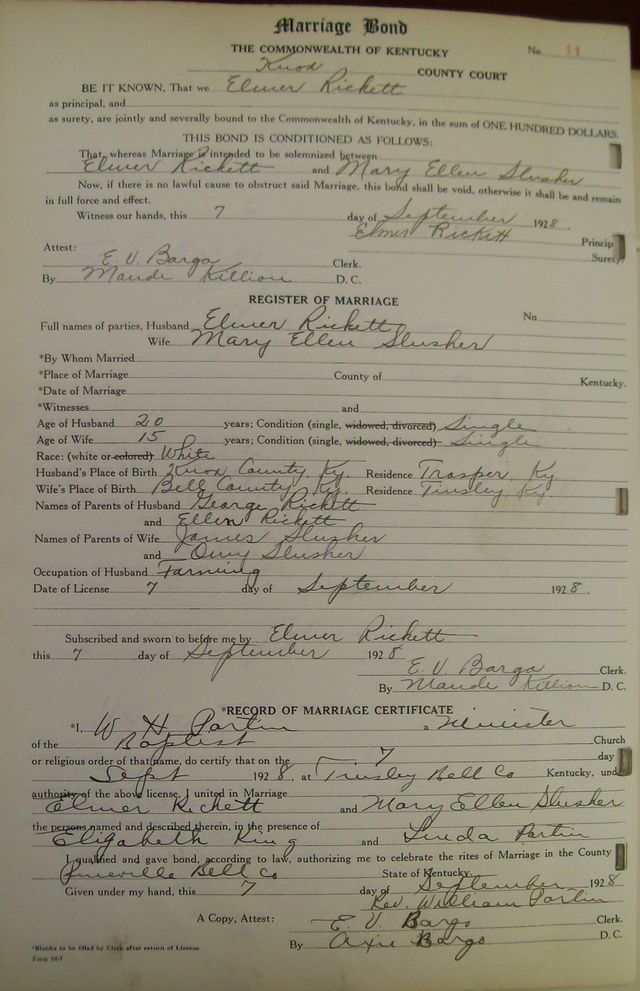 Marriage Bond
THE COMMONWEALTH OF KENTUCKY
No. 11
Knox COUNTY COURT
BE IT KNOWN, That we Elmer Rickett
as principal, and
as surety, are jointly and severally bound to the Commonwealth of Kentucky, in the sum of ONE HUNDRED DOLLARS.
THIS BOND IS CONDITIONED AS FOLLOWS:
That, whereas Marriage is intended to be solemnized between
Elmer Rickett and Mary Ellen Slusher
Now, if there is no lawful cause to obstruct said Marriage, this bond shall be void, otherwise it shall be and remain
in full force and effect.
Witness our hands, this 7 day of September 1928
Elmer Rickett Princip
Attest: Surety
E. V. Barga Clerk.
By Maude Killion D. C.
REGISTER OF MARRIAGE
Full names of parties, Husband Elmer Rickett No
Wife Mary Ellen Slusher
*By Whom Married
*Place of Marriage County of Kentucky.
*Date of Marriage
*Witnesses and
Age of Husband 20 years; Condition (single, widowed, divorced) Single
Age of Wife 15 years; Condition (single, widowed, divorced) Single
Race: (white or colored) White
Husband's Place of Birth Knox County, Ky. Residence Trosper, Ky
Wife's Place of Birth Bell County Ky. Residence Tinsley Ky
Names of Parents of Husband George Rickett
and Ellen Rickett
Names of Parents of Wife James Slusher
and Slusher
Occupation of Husband Farming
Date of License 7 day of September 1928.
Subscribed and sworn to before me by Elmer Rickett
this 7 day of September 1928
E. V. Barga Clerk.
By Maude Killion D. C.
*RECORD OF MARRIAGE CERTIFICATE
*I, W H Partin a Minister
of the Baptist Church
or religious order of that name, do certify that on the 7 day
Sept 1928, at Tinsley Bell Co Kentucky, und
authority of the above license, I united in Marriage
Elmer Rickett and Mary Ellen Slusher
the persons named and described therein, in the presence of
Elizabeth King and Linda Partin
I qualified and gave bond, according to law, authorizing me to celebrate the rites of Marriage in the County
Pineville Bell Co State of Kentucky.
Given under my hand, this 7 day of September 1928
Rev. William Partin
A Copy, Attest: E. V. Bargo Clerk.
By Bargo D. C.
*Blanks to be filled by Clerk after return of License